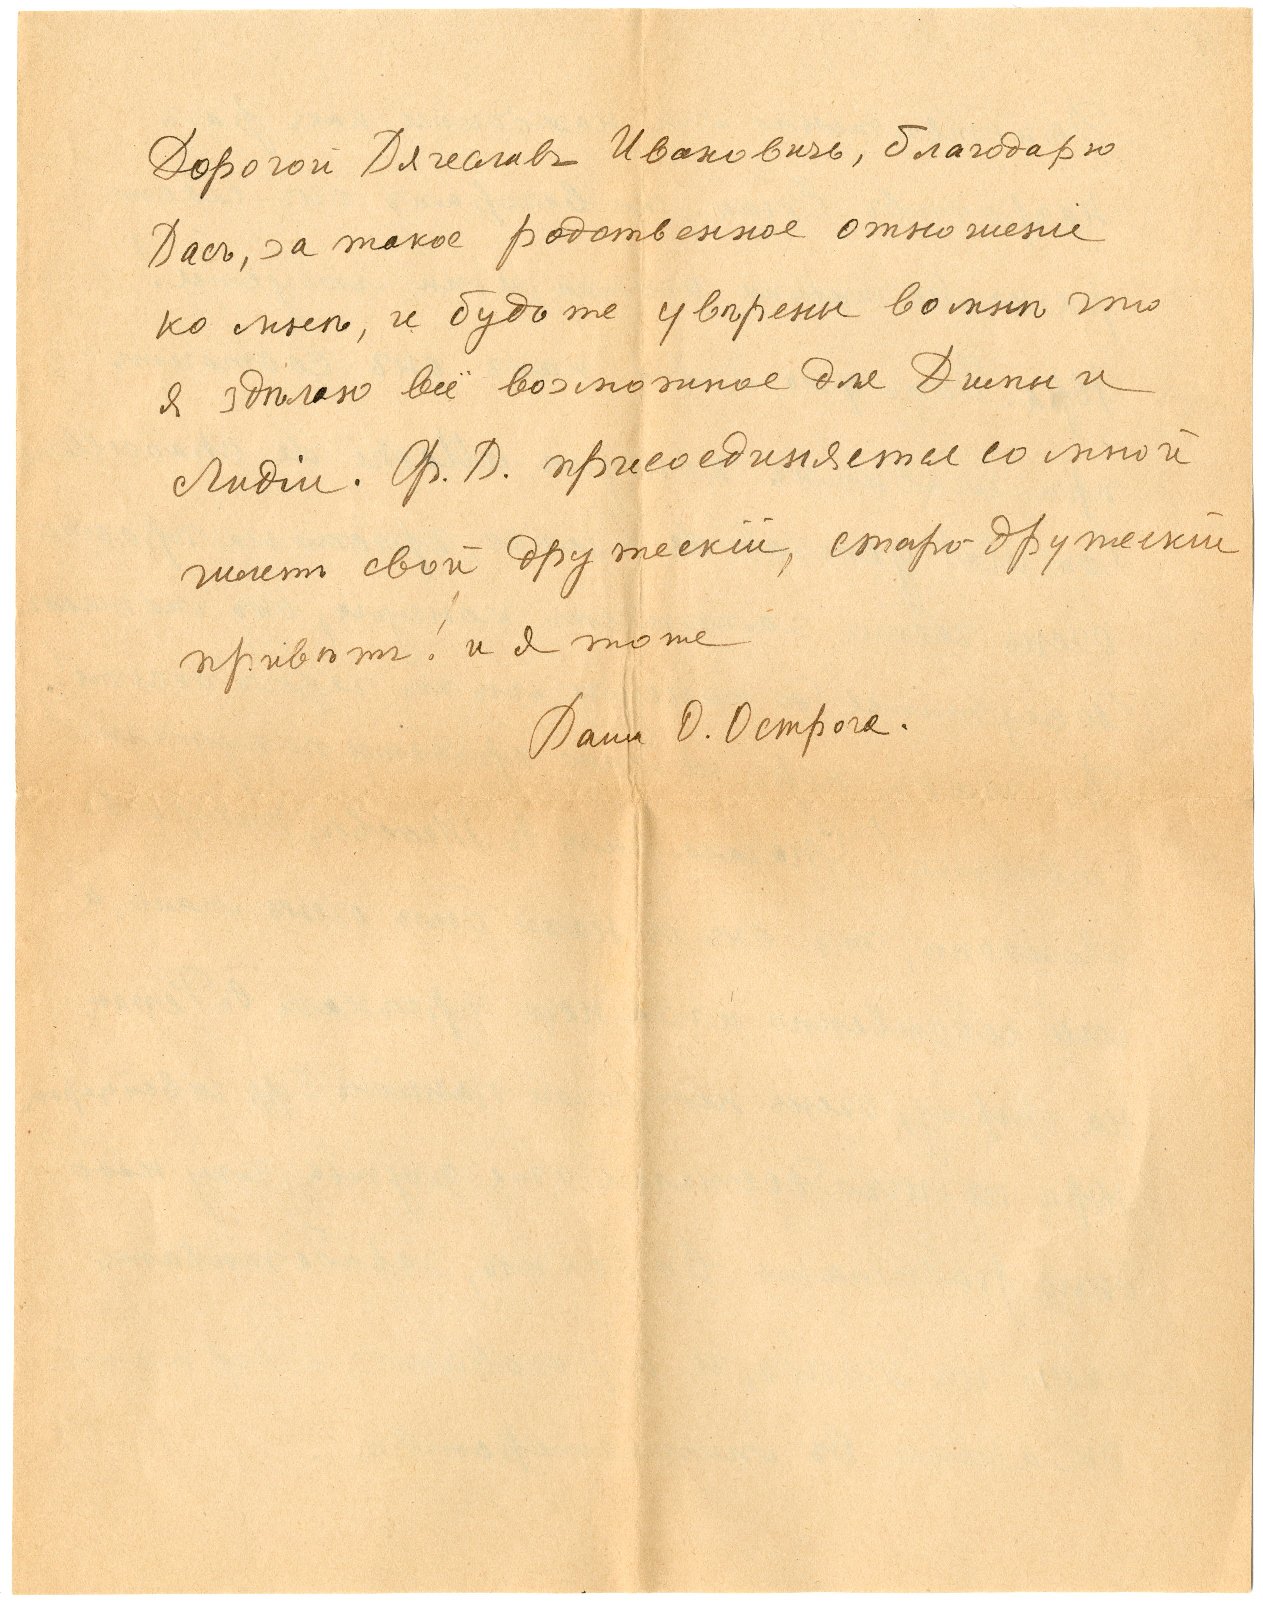 Дорогой Вячеславъ Ивановичъ, благодарю
Васъ, за такое родственное отношеніе
ко мнѣ, и будьте увѣрены во мнѣ что
я здѣлаю всё возможное для Димы и
Лидіи. Ф. Д. присоединяется со мной
шлетъ свой дружескій, старо-дружескій
привѣтъ! и я тоже
Ваша О. Острога.